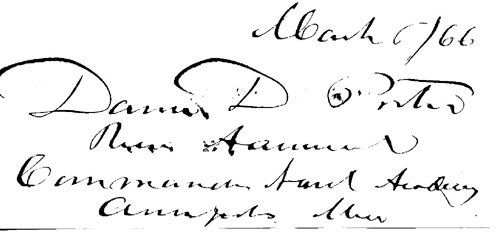 March 6/66
David D Porter
Rear Admiral
Commander Naval Academy
Annapolis Md